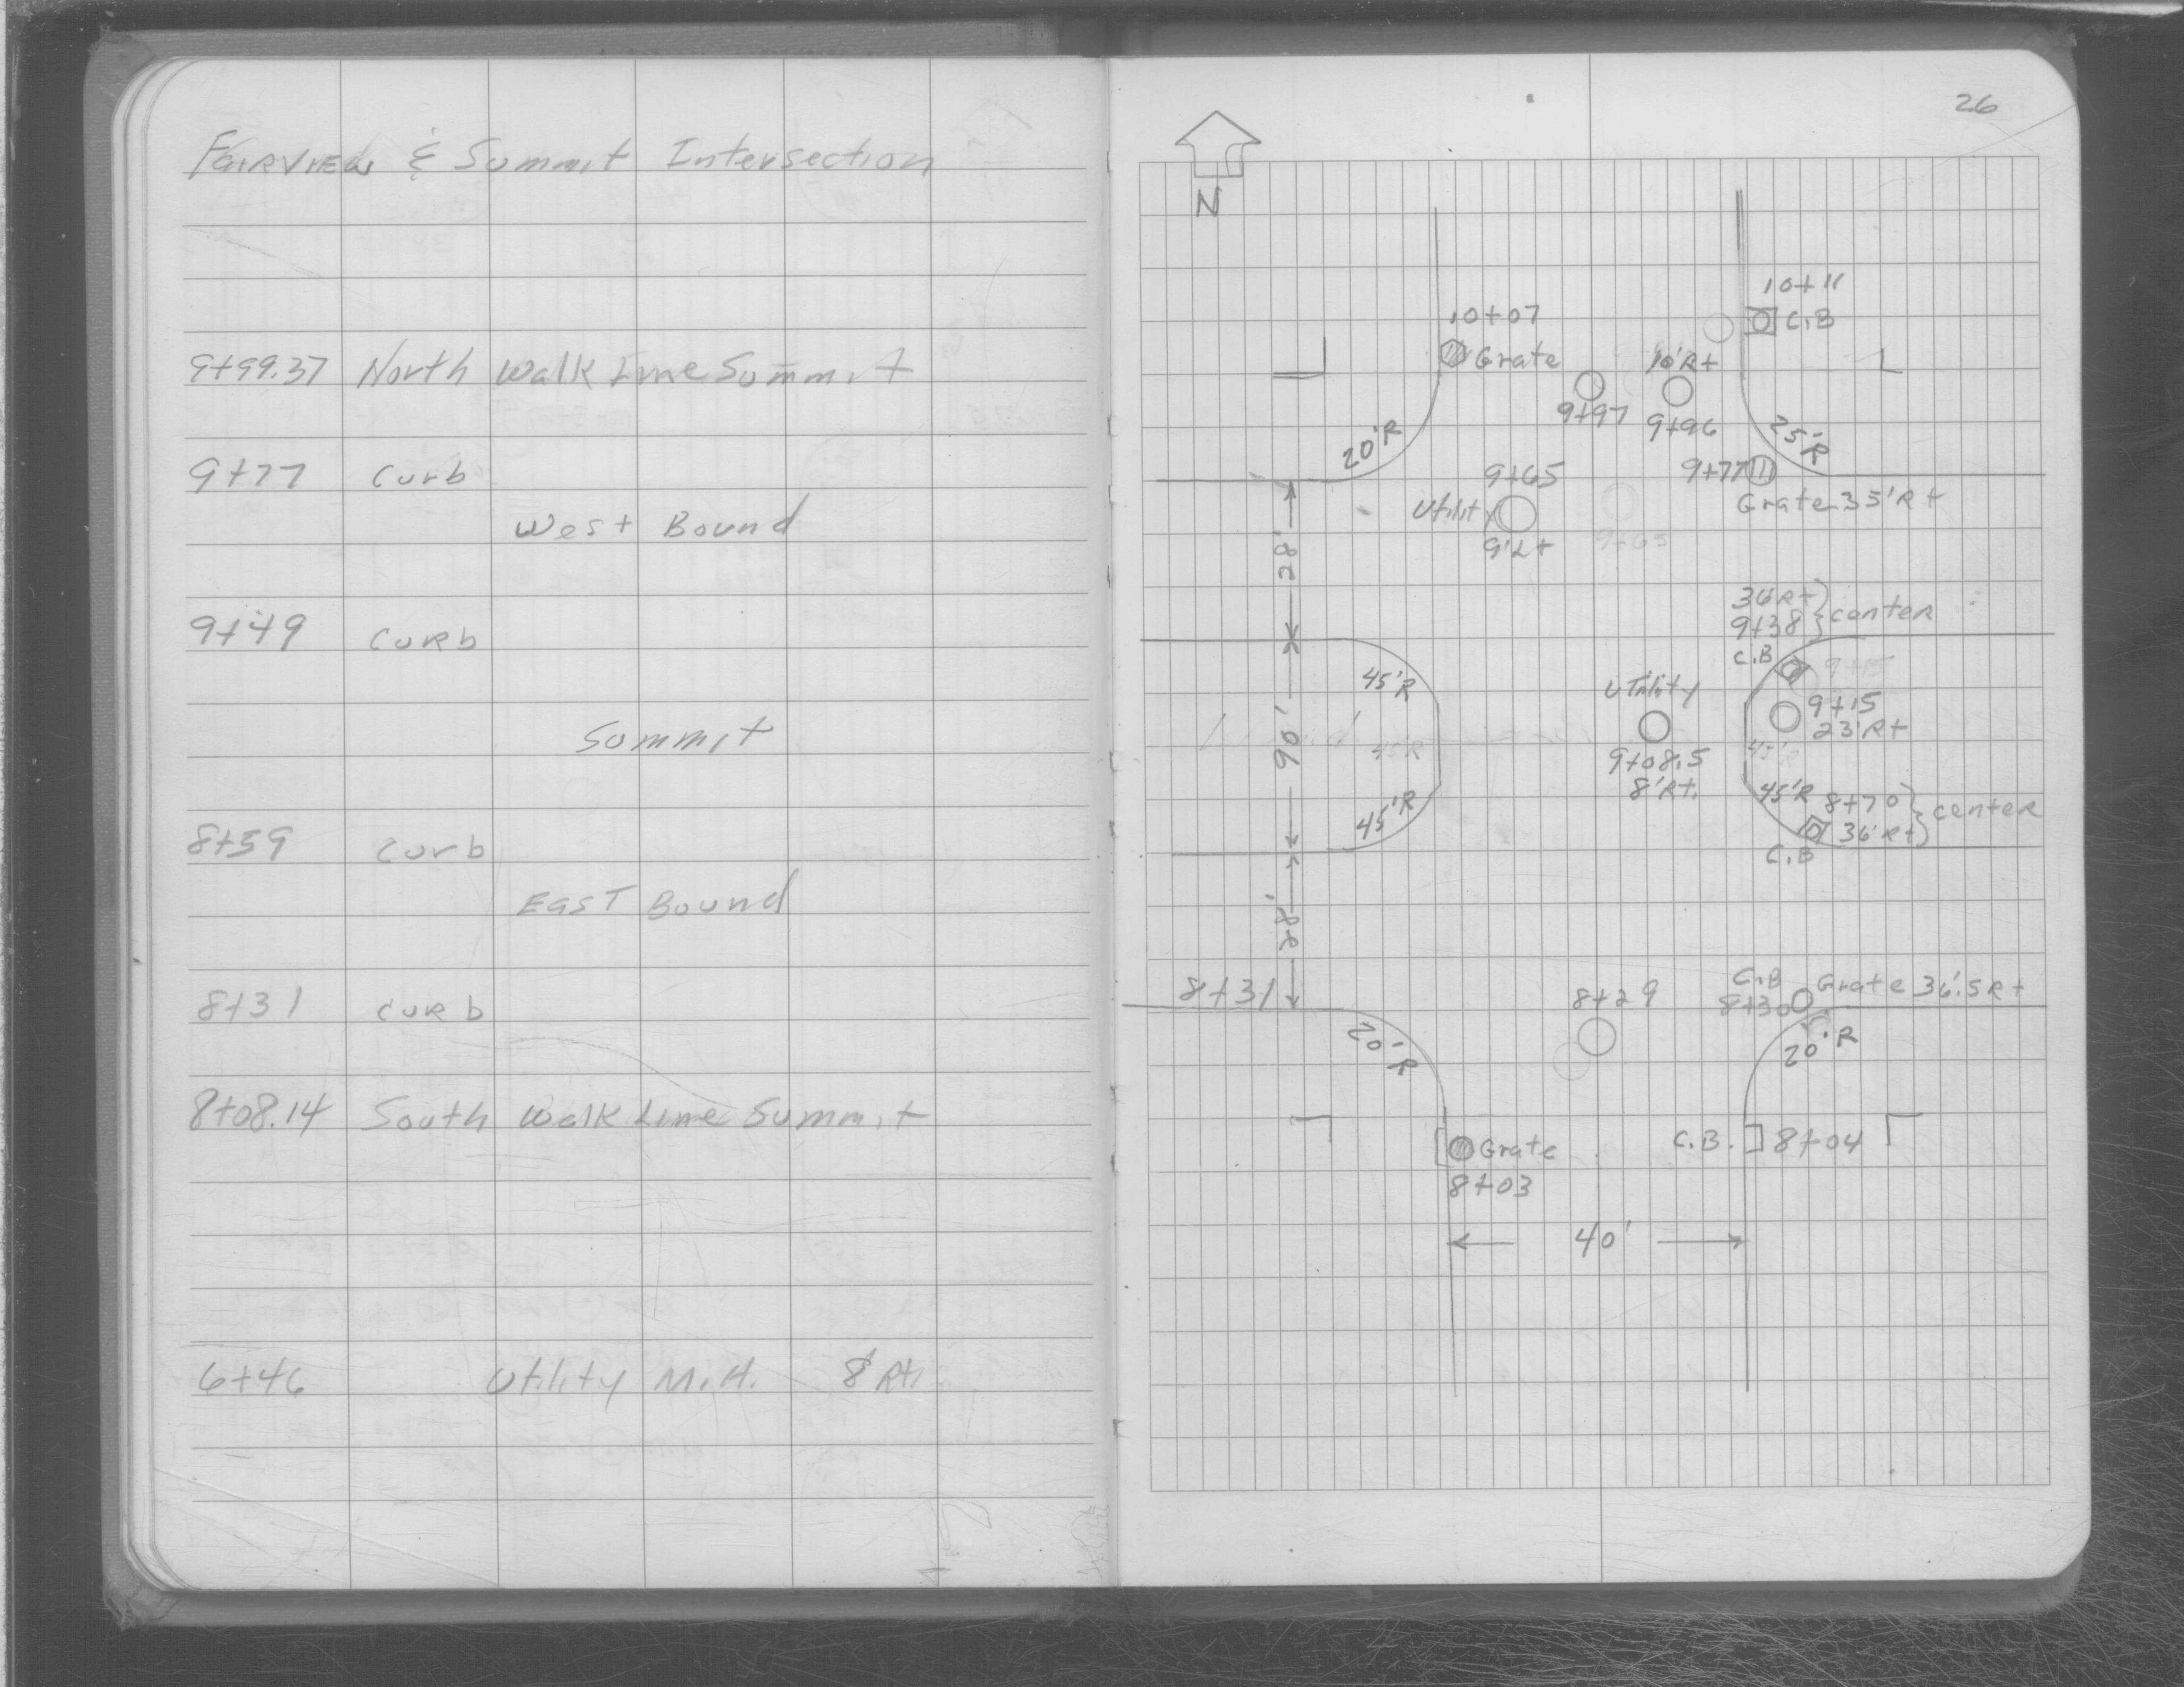 FAIRVIEW & Summit Intersection
9+99.37 North Walk Line Summit
9+77 Curb
West Bound
9+49 Curb
Summit
8+59 Curb
EAST Bound
8+31 curb
8+08.14 South Walk Line Summit
6+46 Utility M.H. 8' Rt.
26
N
10+11
C.B
10+07
Grate
10' Rt
9+97
9+96
20'R
25'R
9+77
Grate 35' Rt
9+65
Utility
9' Lt
9+65
28'
36' Rt
9+38
center
C.B
45'R
Utility
9+15
9+15
23' Rt
9+08.5
8' Rt.
90'
45'R
45'R
45'R
45'R
8+70
36' Rt
center
C.B
28'
8+31
8+29
C.B
8+30
Grate 36.5 Rt
20'R
20'R
Grate
8+03
C.B.
8+04
40'